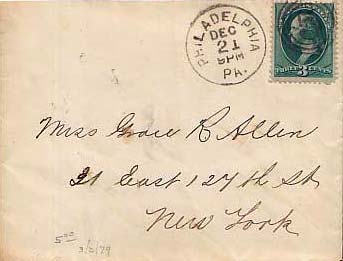 PHILADELPHIA
DEC
21
9PM
PA.
THREE 3 CENTS
Miss Grace R Allen
21 East 127th St
New York
5.00